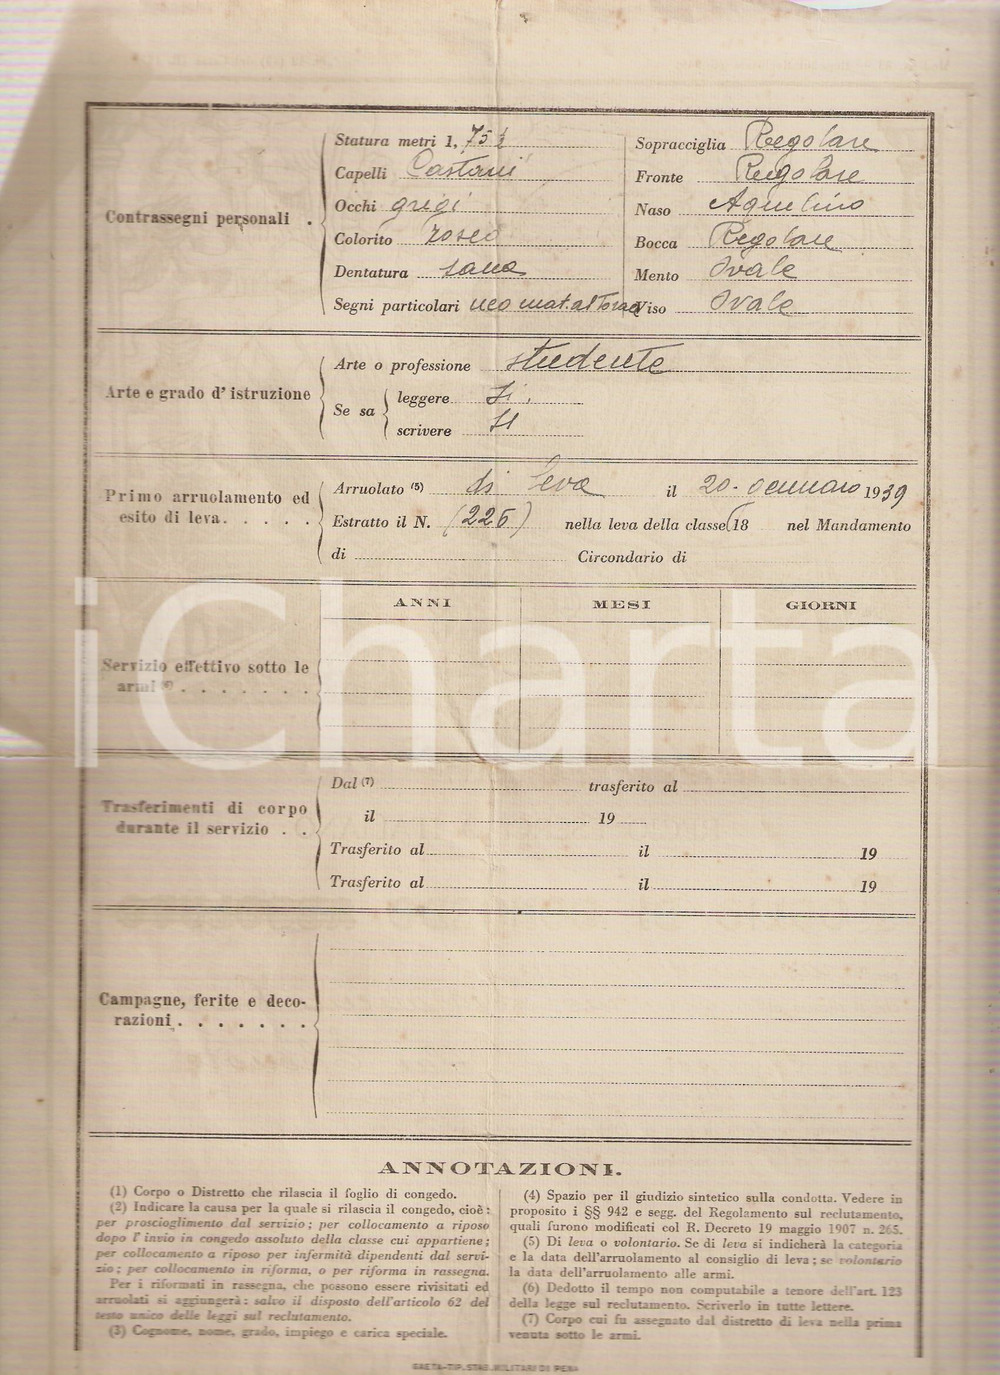 Contrassegni personali .
Statura metri 1, 75 ½
Capelli Castani
Occhi grigi
Colorito roseo
Dentatura sana
Segni particolari neo mat. al Torace
Sopracciglia Regolare
Fronte Regolare
Naso Aquilino
Bocca Regolare
Mento Ovale
Viso Ovale
Arte e grado d' istruzione
Arte o professione studente
Se sa
leggere Si.
scrivere SI
Primo arruolamento ed
esito di leva. . . . . .
Arruolato (5) di leva il 20 - Gennaio 1939
Estratto il N. (226) nella leva della classe 18 nel Mandamento
di Circondario di
ANNI MESI GIORNI
Servizio effettivo sotto le
armi (6) . . . . . . .
Trasferimenti di corpo
durante il servizio . .
Dal (7) trasferito al
il 19
Trasferito al il 19
Trasferito al il 19
Campagne, ferite e deco-
razioni . . . . . . .
iCharta
ANNOTAZIONI.
(1) Corpo o Distretto che rilascia il foglio di congedo.
(2) Indicare la causa per la quale si rilascia il congedo, cioè:
per proscioglimento dal servizio; per collocamento a riposo
dopo l' invio in congedo assoluto della classe cui appartiene;
per collocamento a riposo per infermità dipendenti dal servi-
zio; per collocamento in riforma, o per riforma in rassegna.
Per i riformati in rassegna, che possono essere rivisitati ed
arruolati si aggiungerà: salvo il disposto dell'articolo 62 del
testo unico delle leggi sul reclutamento.
(3) Cognome, nome, grado, impiego e carica speciale.
(4) Spazio per il giudizio sintetico sulla condotta. Vedere in
proposito i §§ 942 e segg. del Regolamento sul reclutamento,
quali furono modificati col R. Decreto 19 maggio 1907 n. 265.
(5) Di leva o volontario. Se di leva si indicherà la categoria
e la data dell'arruolamento al consiglio di leva; se volontario
la data dell'arruolamento alle armi.
(6) Dedotto il tempo non computabile a tenore dell'art. 123
della legge sul reclutamento. Scriverlo in tutte lettere.
(7) Corpo cui fu assegnato dal distretto di leva nella prima
venuta sotto le armi.
GAETA-TIP. STAB. MILITARI DI PENA